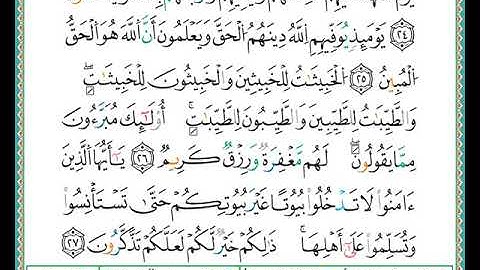 ۝٢٤ يَوْمَئِذٍ يُوَفِّيهِمُ ٱللَّهُ دِينَهُمُ ٱلْحَقَّ وَيَعْلَمُونَ أَنَّ ٱللَّهَ هُوَ ٱلْحَقُّ
ٱلْمُبِينُ ۝٢٥ ٱلْخَبِيثَٰتُ لِلْخَبِيثِينَ وَٱلْخَبِيثُونَ لِلْخَبِيثَٰتِۖ
وَٱلطَّيِّبَٰتُ لِلطَّيِّبِينَ وَٱلطَّيِّبُونَ لِلطَّيِّبَٰتِۚ أُو۟لَٰٓئِكَ مُبَرَّءُونَ
مِمَّا يَقُولُونَۖ لَهُم مَّغْفِرَةٌ وَرِزْقٌ كَرِيمٌ ۝٢٦ يَٰٓأَيُّهَا ٱلَّذِينَ
ءَامَنُوا۟ لَا تَدْخُلُوا۟ بُيُوتًا غَيْرَ بُيُوتِكُمْ حَتَّىٰ تَسْتَأْنِسُوا۟
وَتُسَلِّمُوا۟ عَلَىٰٓ أَهْلِهَاۚ ذَٰلِكُمْ خَيْرٌ لَّكُمْ لَعَلَّكُمْ تَذَكَّرُونَ ۝٢٧